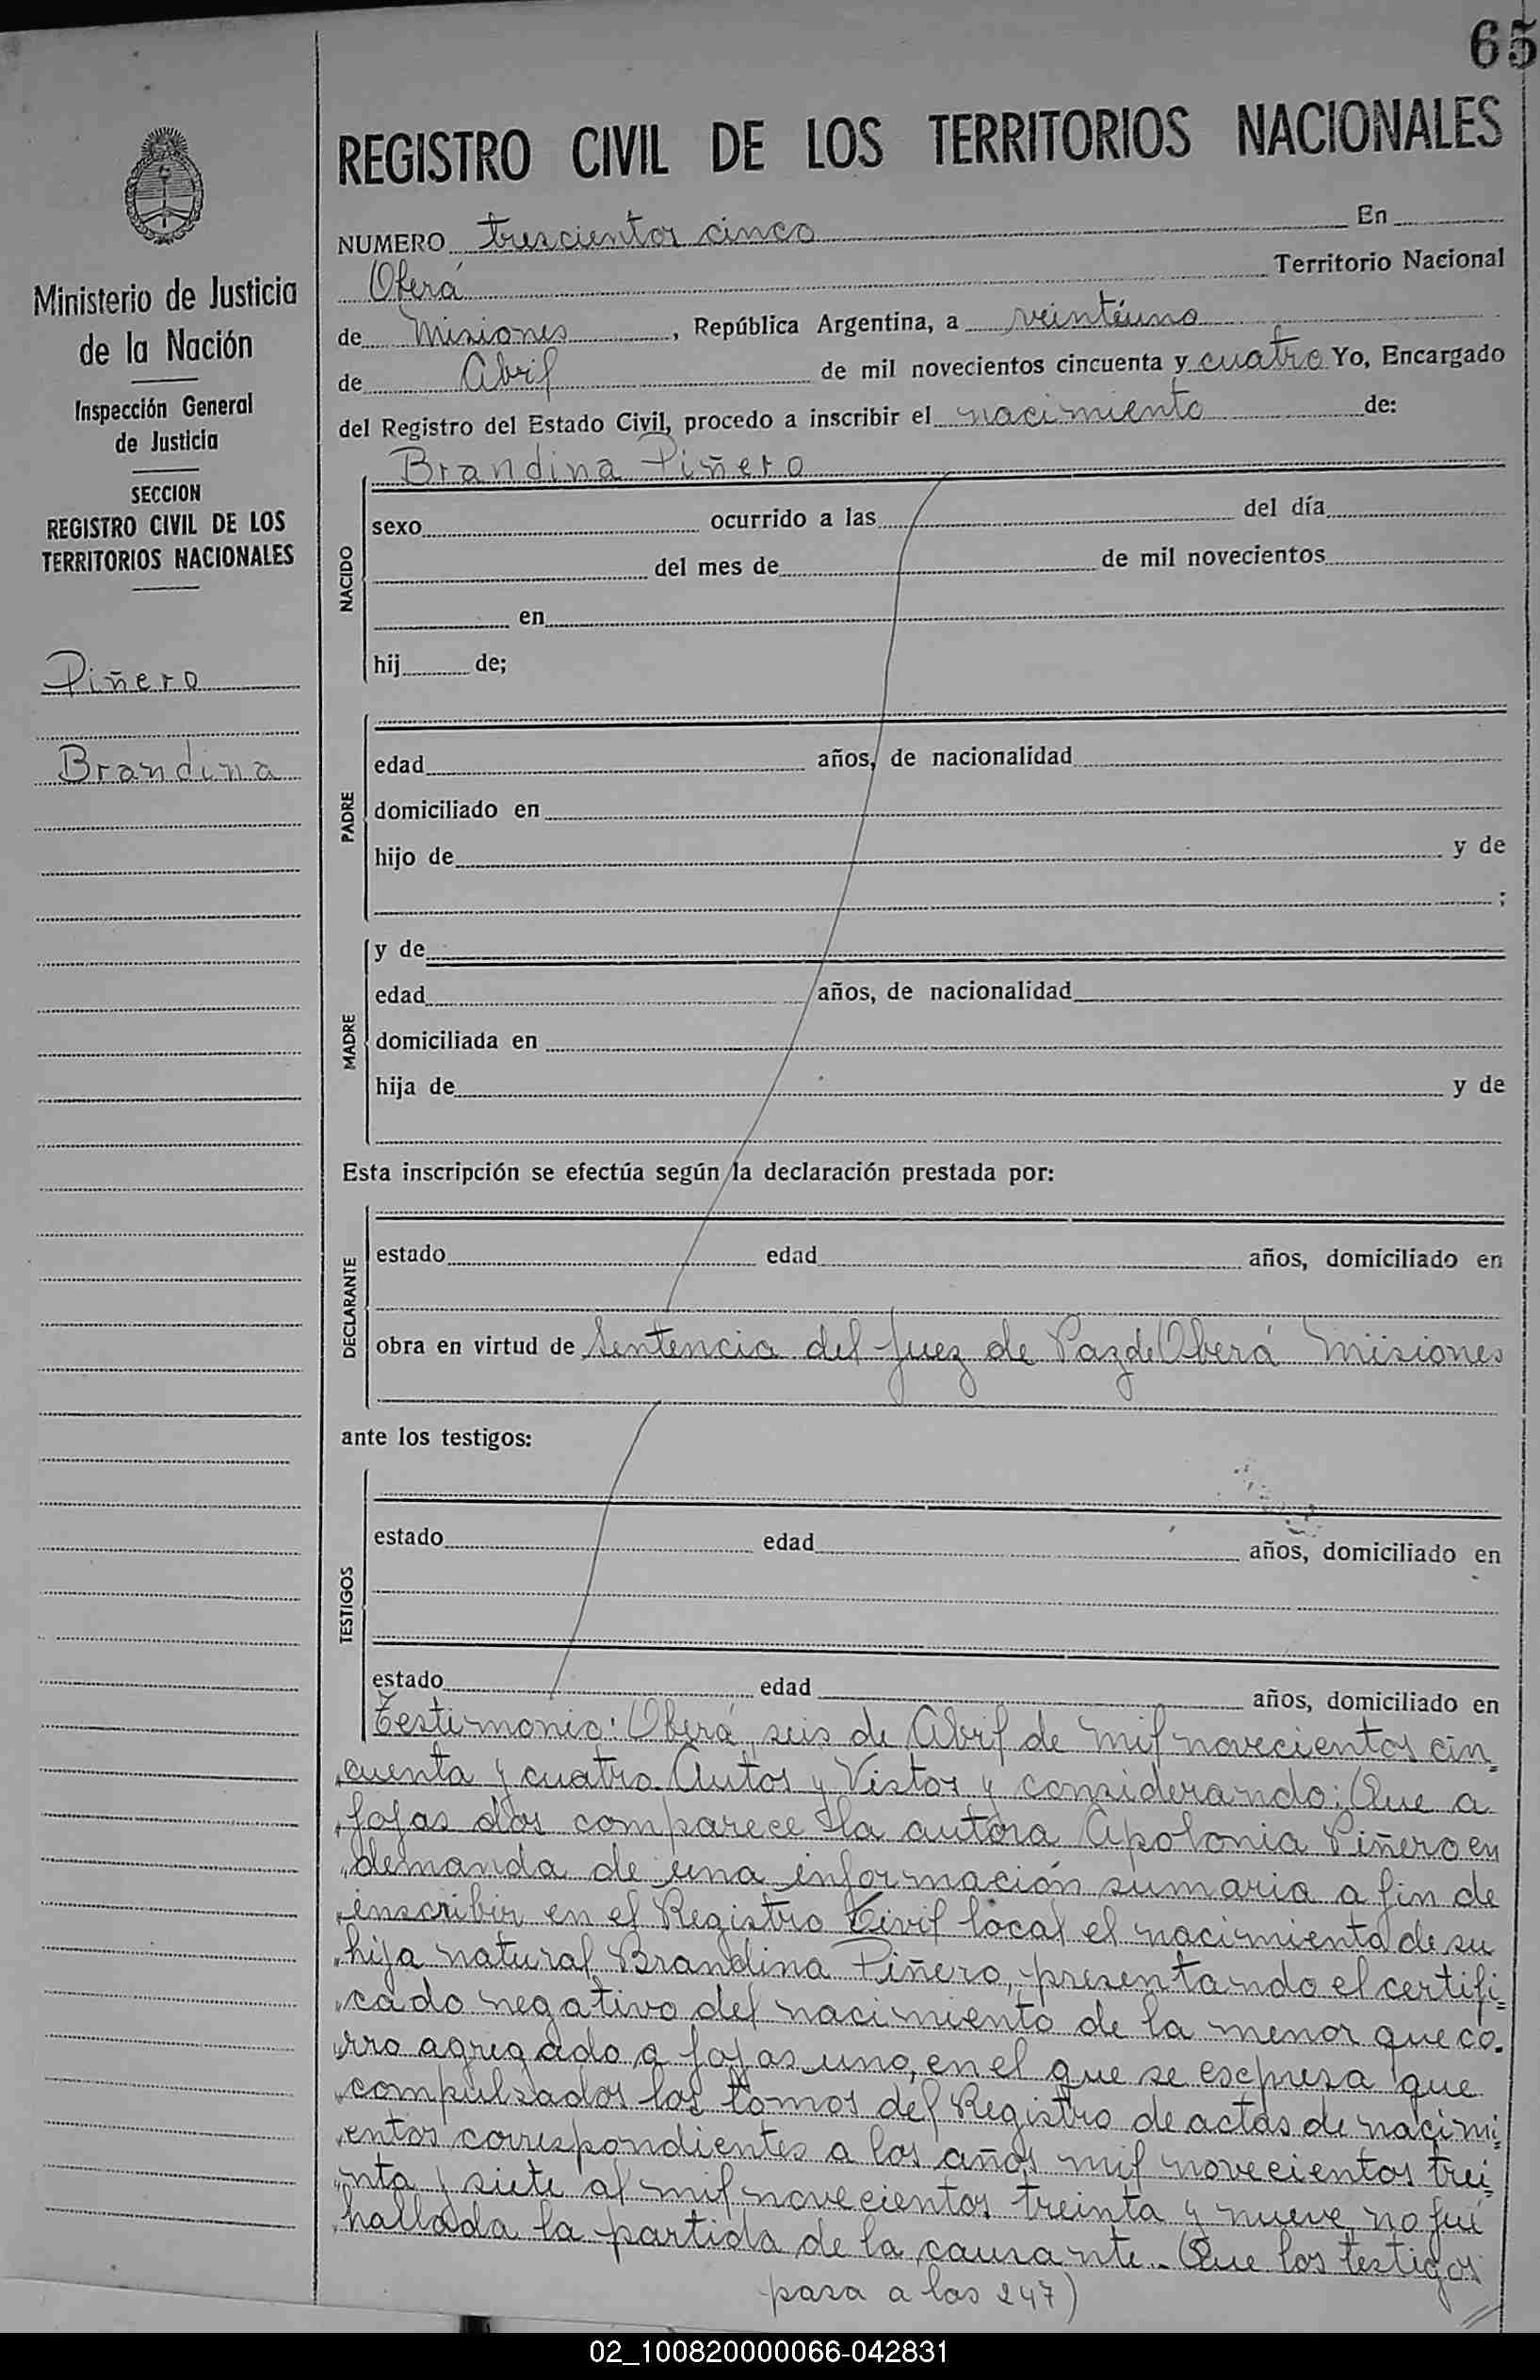 65
REGISTRO CIVIL DE LOS TERRITORIOS NACIONALES
Ministerio de Justicia
de la Nación
Inspección General
de Justicia
SECCION
REGISTRO CIVIL DE LOS
TERRITORIOS NACIONALES
Piñero
Brandina
NUMERO trescientos cinco En
Oberá Territorio Nacional
de Misiones, República Argentina, a veintiuno
de Abril de mil novecientos cincuenta y cuatro Yo, Encargado
del Registro del Estado Civil, procedo a inscribir el nacimiento de:
Brandina Piñero
NACIDO
sexo ocurrido a las del día
del mes de de mil novecientos
en
hij de;
PADRE
edad años, de nacionalidad
domiciliado en
hijo de y de
;
MADRE
y de
edad años, de nacionalidad
domiciliada en
hija de y de
Esta inscripción se efectúa según la declaración prestada por:
DECLARANTE
estado edad años, domiciliado en
obra en virtud de Sentencia del Juez de Paz de Oberá Misiones
ante los testigos:
TESTIGOS
estado edad años, domiciliado en
estado edad años, domiciliado en
Testimonio: Oberá, seis de Abril de mil novecientos cin=
cuenta y cuatro. Autos y Vistos y considerando: Que a
fojas dos comparece la autora Apolonia Piñero en
demanda de una información sumaria a fin de
inscribir en el Registro Civil local el nacimiento de su
hija natural Brandina Piñero, presentando el certifi=
cado negativo del nacimiento de la menor que co.
rro agregado a fojas uno, en el que se escpresa que
compulsados los tomos del Registro de actas de nacimi=
entos correspondientes a los años mil novecientos trei=
nta y siete al mil novecientos treinta y nueve no fué
hallada la partida de la causante. Que los testigos
pasa a las 247)
02_100820000066-042831